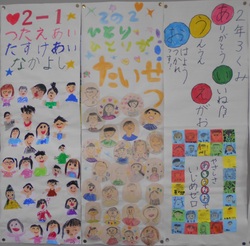 ♥2-1
つたえあい
たすけあい
なかよし
2の2
ひとり
ひとりが
たいせつ
年3くみ
ありがとう
いいね
うんうん
えがお
おはよう
おつかれ
やさしさ
いじめゼロ